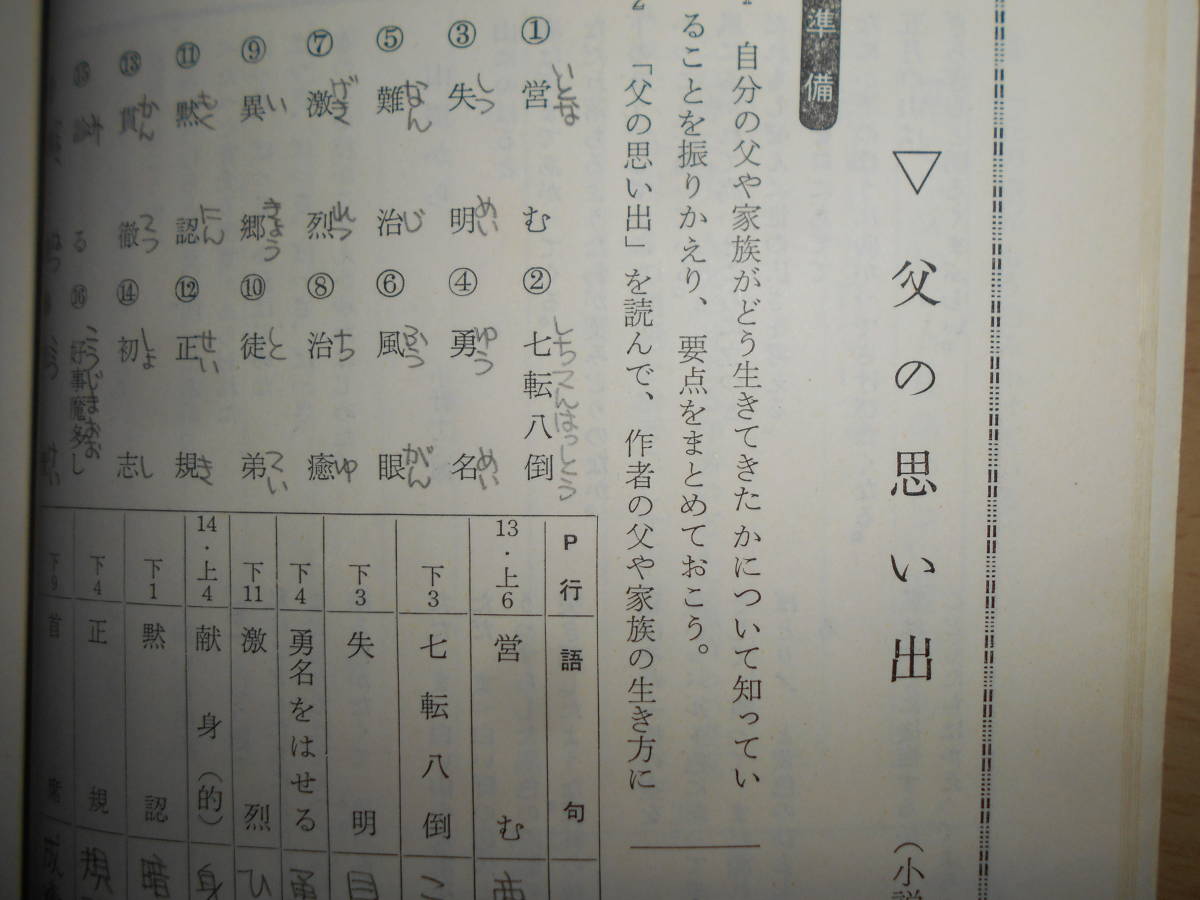 ▽ 父の思い出
（小説
準備
自分の父や家族がどう生きてきたかについて知ってい
ることを振りかえり、要点をまとめておこう。
2 「父の思い出」を読んで、作者の父や家族の生き方に
① 営む いとな
② 七転八倒 しちてんはっとう
③ 失明 しつ めい
④ 勇名 ゆう めい
⑤ 難治 なん じ
⑥ 風眼 ふう がん
⑦ 激烈 げき れつ
⑧ 治癒 ち ゆ
⑨ 異郷 い きょう
⑩ 徒弟 と てい
⑪ 黙認 もく にん
⑫ 正規 せい き
⑬ 貫徹 かん てつ
⑭ 初志 しょ し
⑮ る
⑯ 好事魔多し こうじまおお
P行 語句
13・上6 営む
下3 七転八倒
下3 失明
下4 勇名をはせる
下11 激烈
14・上4 献身（的） 身
下1 黙認 暗
下4 正規 規
下9 首席